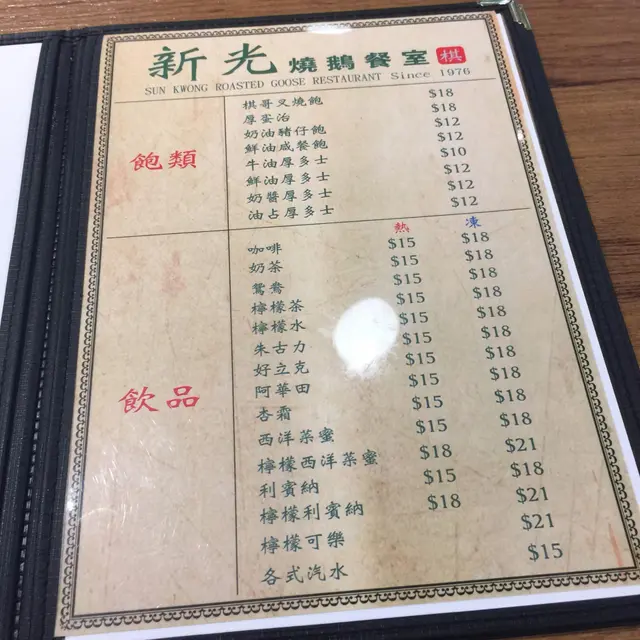 新光燒鵝餐室 棋
SUN KWONG ROASTED GOOSE RESTAURANT Since 1976
飽類
棋哥叉燒飽 $18
厚蛋治 $18
奶油豬仔飽 $12
鮮油咸餐飽 $12
牛油厚多士 $10
鮮油厚多士 $12
奶醬厚多士 $12
油占厚多士 $12
飲品
熱 凍
咖啡 $15 $18
奶茶 $15 $18
鴛鴦 $15 $18
檸檬茶 $15 $18
檸檬水 $15 $18
朱古力 $15 $18
好立克 $15 $18
阿華田 $15 $18
杏霜 $15 $18
西洋菜蜜 $15 $18
檸檬西洋菜蜜 $18 $21
利賓納 $15 $18
檸檬利賓納 $18 $21
檸檬可樂 $21
各式汽水 $15